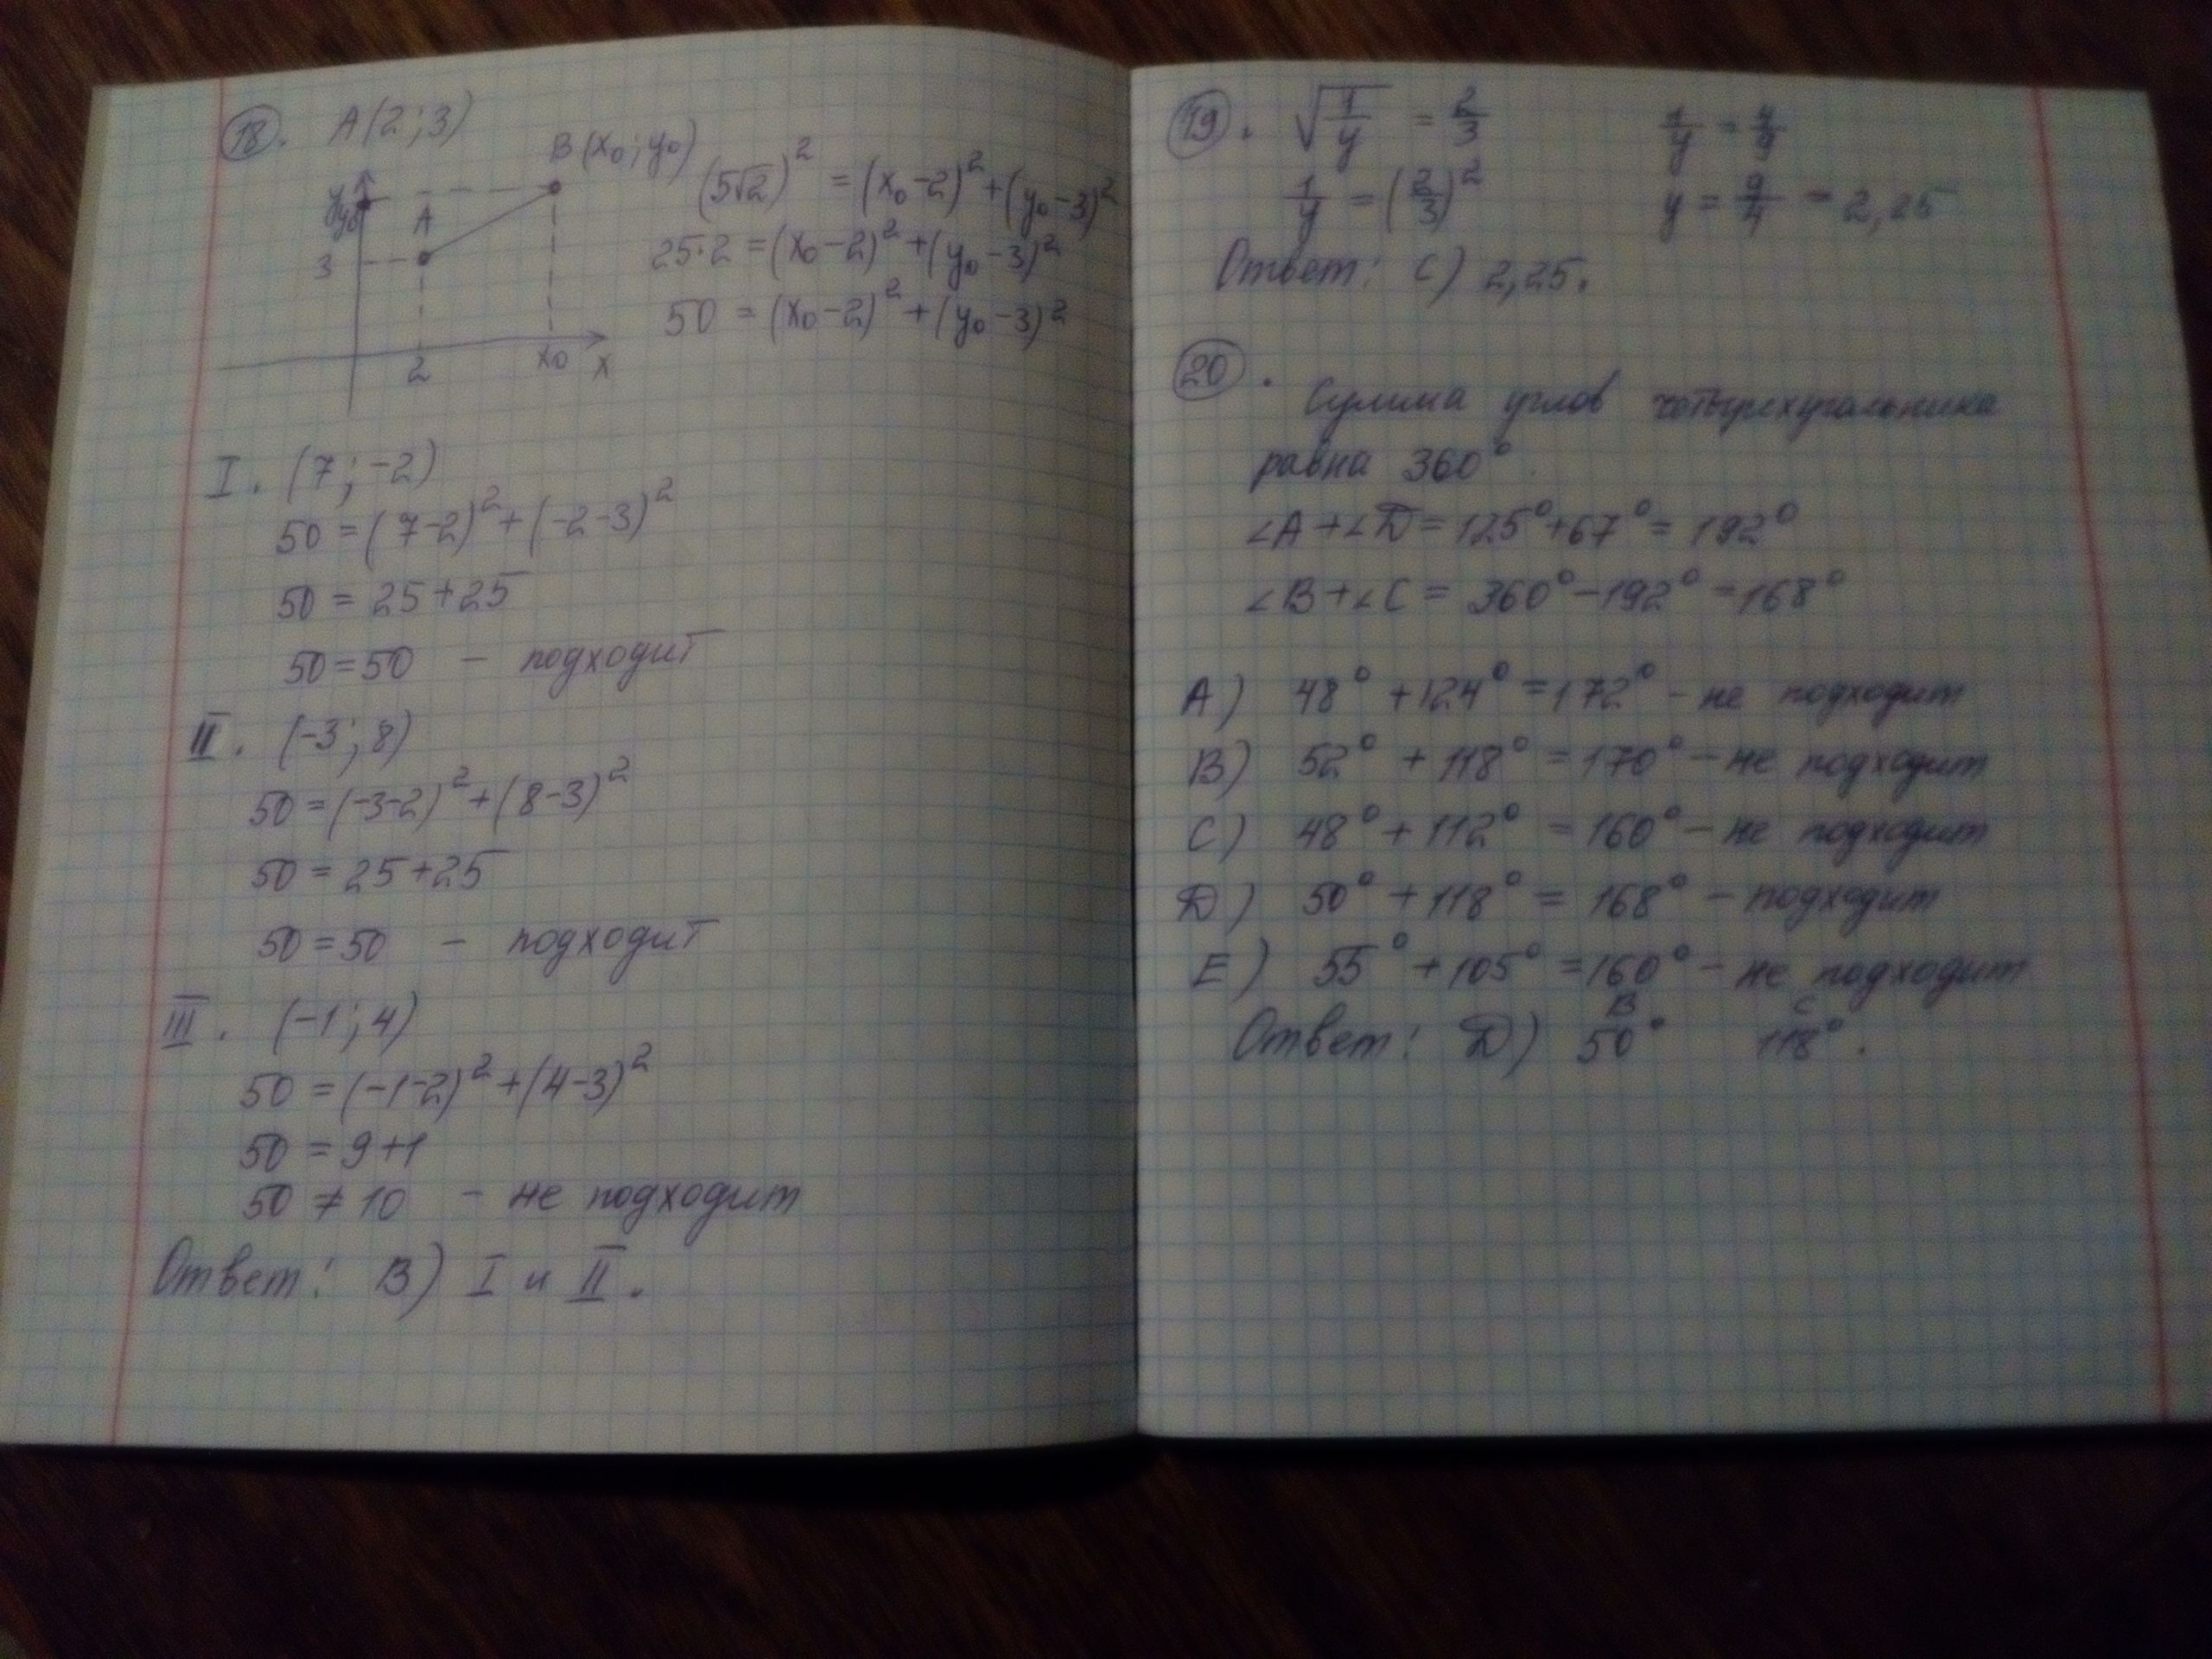 18. A(2;3)
B(x₀;y₀)
y
y₀
A
3
2
x₀
x
(5√2)² = (x₀-2)²+(y₀-3)²
25·2 = (x₀-2)²+(y₀-3)²
50 = (x₀-2)²+(y₀-3)²
I. (7;-2)
50 = (7-2)²+(-2-3)²
50 = 25+25
50=50 - подходит
II. (-3;8)
50 = (-3-2)²+(8-3)²
50 = 25+25
50=50 - подходит
III. (-1;4)
50 = (-1-2)²+(4-3)²
50 = 9+1
50 ≠ 10 - не подходит
Ответ: B) I и II.
19. √(1/y) = 2/3
1/y = (2/3)²
1/y = 4/9
y = 9/4 = 2,25
Ответ: C) 2,25.
20. Сумма углов четырехугольника
равна 360°.
∠A+∠D=125°+67°=192°
∠B+∠C= 360°-192°=168°
A) 48°+124°=172° - не подходит
B) 52°+118°=170° - не подходит
C) 48°+112°=160° - не подходит
D) 50°+118°=168° - подходит
E) 55°+105°=160° - не подходит
B C
Ответ: D) 50° 118°.